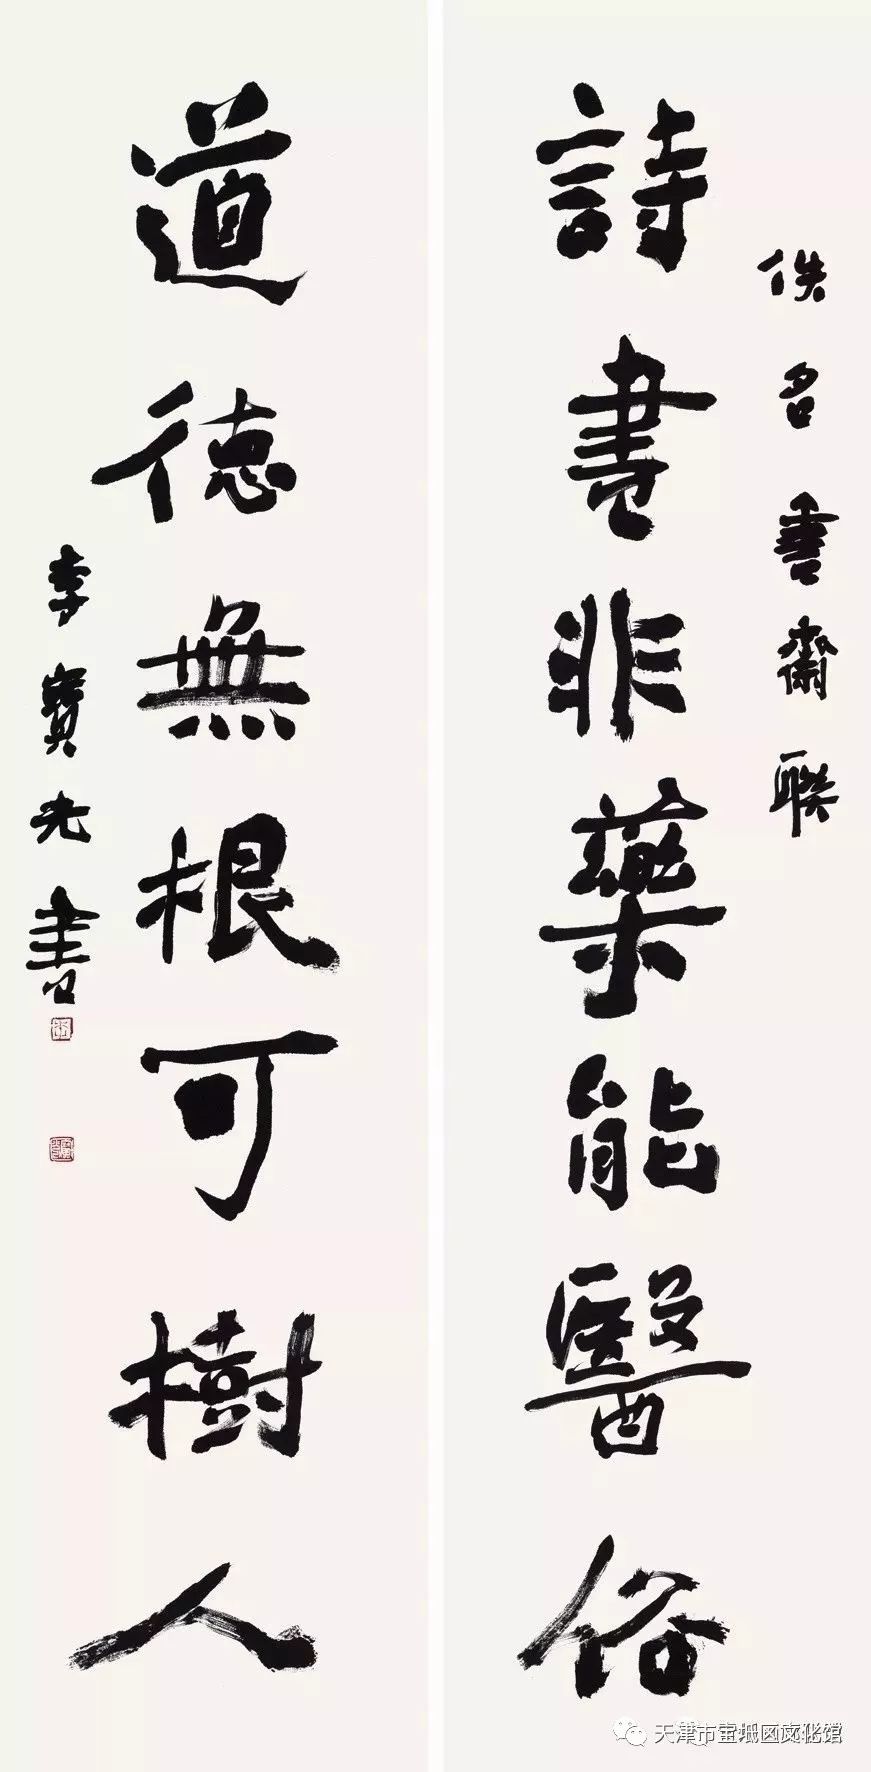 佚名書齋聯
詩書非藥能醫俗
道德無根可樹人
李寶光書
天津市宝坻区文化馆